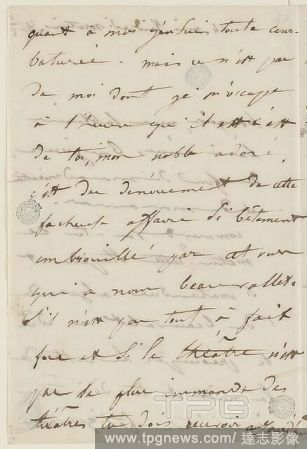 quant à moi j'en suis toute cour-
baturée. mais ce n'est pas
de moi dont je m'occupe
à l'heure qu'il est c'est
de toi, mon noble adoré,
c'est du dénouement de cette
facheuse affaire si bêtement
embrouillée par cet
qui a nom beauvallet.
S'il n'est pas tout à fait
fou et si le théâtre n'est
pas le plus immonde des
théâtres tu dois recevoir
TPG
www.tpgnews.com/ 達志影像